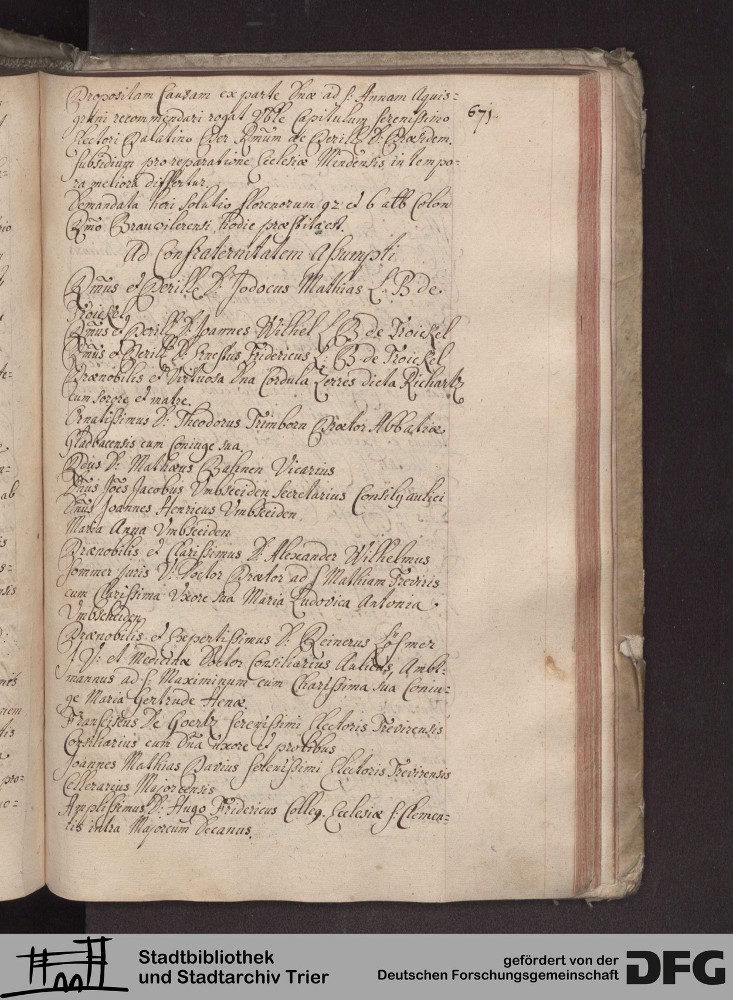 Propositam Causam ex parte Dnæ ad S: Annam Aquis=
grani recommendari rogat Vble Capitulum Serenissimo
Electori Palatino per Rmum ac Perill: D: Præsidem.
671.
Subsidium pro reparatione Ecclesiæ Mindensis in tempo=
ra meliora differtur.
Demandata heri solutio florenorum 92 et 6 alb Colon
Rmo Brauwilerensi hodie præstita est.
Ad Confraternitatem Assumpti
Rmus et Perill: D: Jodocus Mathias L: B: de
Troickel
Rmus et Perill: D: Joannes Wilhel L: B: de Troickel
Rmus et Perill: D: Ernestus Fridericus L: B: de Troickel
Prænobilis et Virtuosa Dna Cordula Zerres dicta Richartz
cum sorore et matre.
Ornatissimus D: Theodorus Trimborn Prætor Abbatiæ
Gladbacensis cum Coniuge sua
Rdus D: Mathæus Vicarius
Dnus Joes Jacobus Umbsceiden Secretarius Consilij aulici
Dnus Joannes Henricus Umbsceiden
Maria Anna Umbsceiden
Prænobilis et Clarissimus D: Alexander Wilhelmus
Sommer juris V: Doctor Prætor ad S Mathiam Treviris
cum Clarissima Uxore sua Maria Ludovica Antonia
Umbscheiden
Prænobilis et Expertissimus D: Reinerus
J: V: et Medicinæ Doctor Consiliarius Aulicus, Ambt=
mannus ad S: Maximinum cum Charissima sua Coniu=
ge Maria Gertrude Henæ
Franciscus De Goertz Serenissimi Electoris Trevirensis
Consiliarius cum Dna uxore et prolibus
Joannes Mathias Serenissimi Electoris Trevirensis
Cellerarius Majoreensis
Amplissimus D: Hugo Fridericus Colleg. Ecclesiæ S: Clemen=
tis intra Majoreum Decanus.
Stadtbibliothek
und Stadtarchiv Trier
gefördert von der
Deutschen Forschungsgemeinschaft
DFG